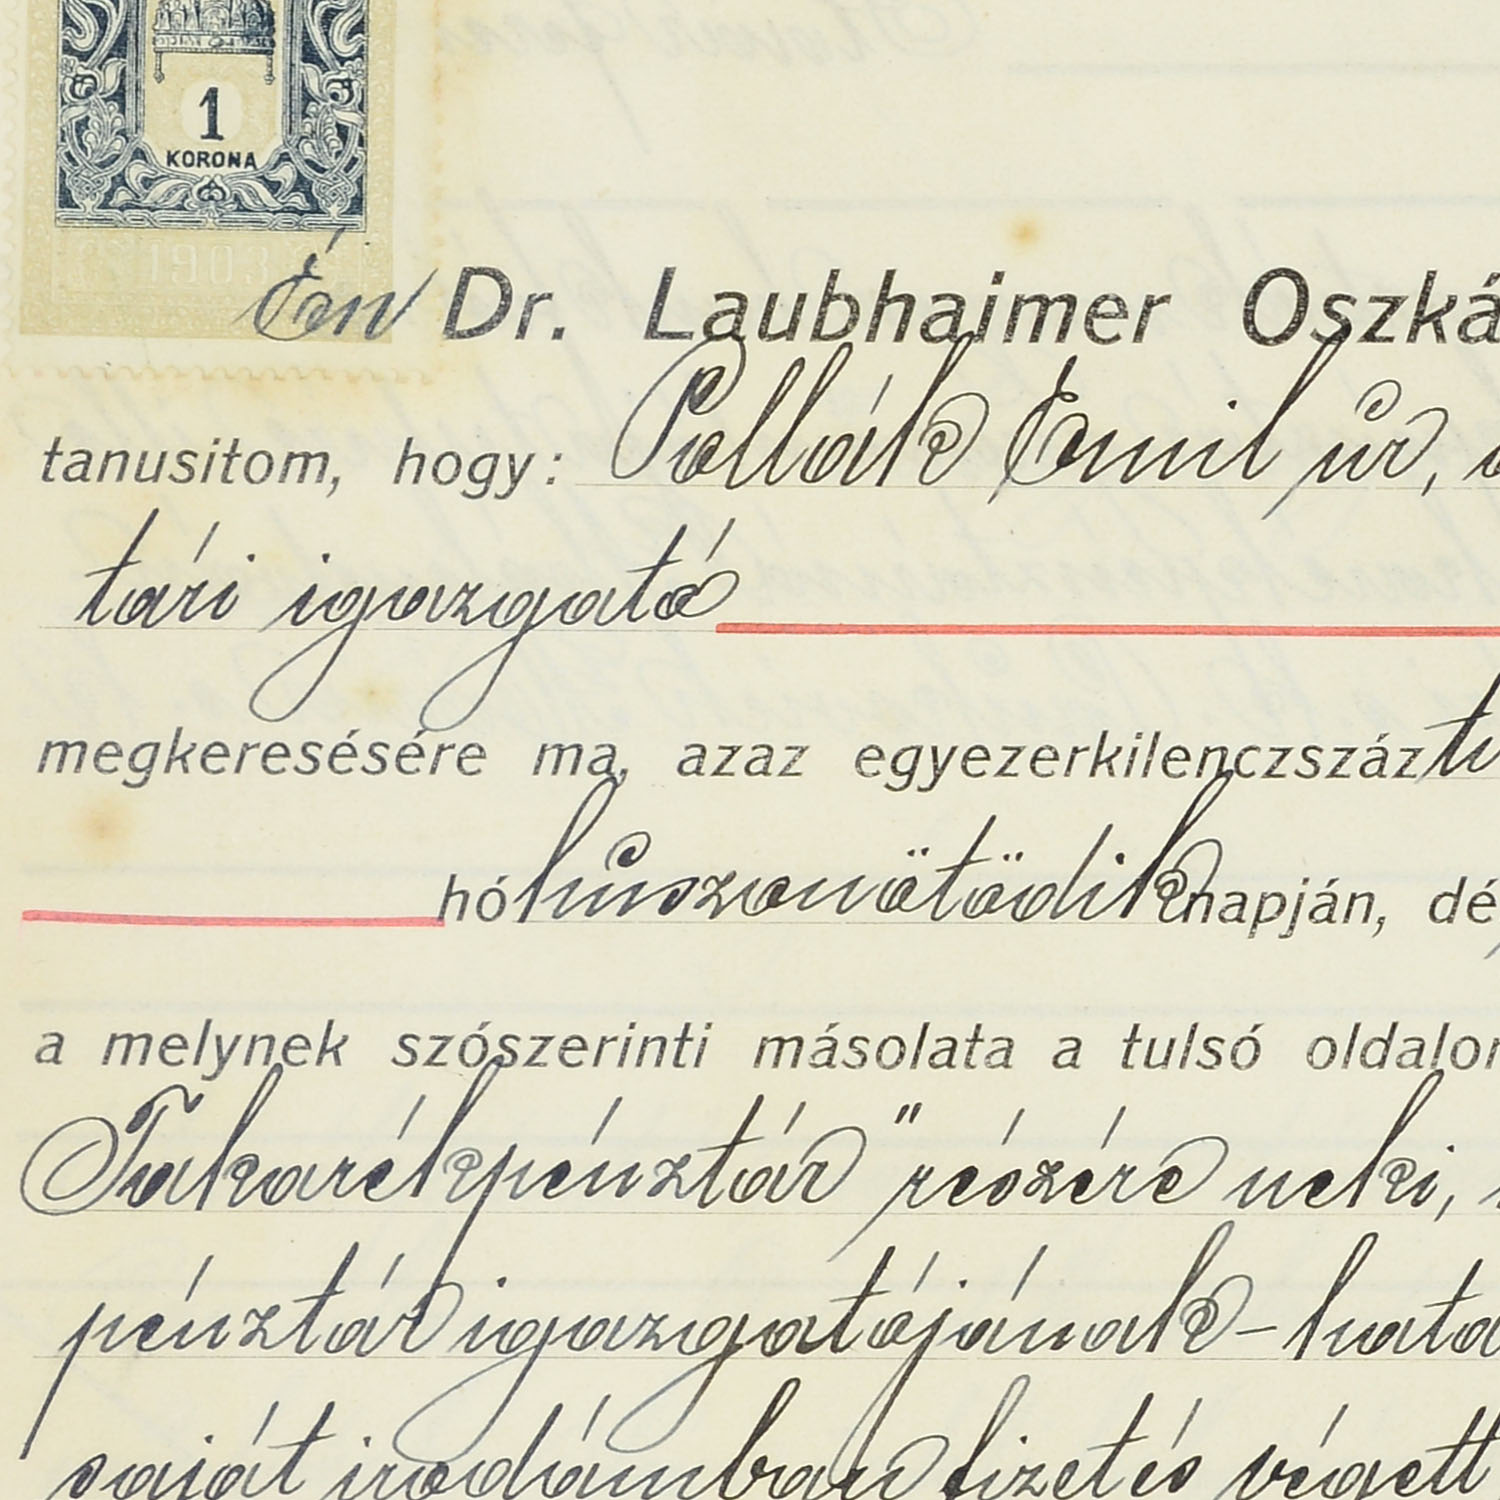 1
KORONA
1903
Én Dr. Laubhaimer Oszká
tanusitom, hogy: Pollák Emil úr,
tári igazgató
megkeresésére ma, azaz egyezerkilenczszáz
hó huszonötödik napján, dé
a melynek szószerinti másolata a tulsó oldalon
Takarékpénztár" részére neki,
pénztár igazgatójának - hata
saját irodámban fizetés végett